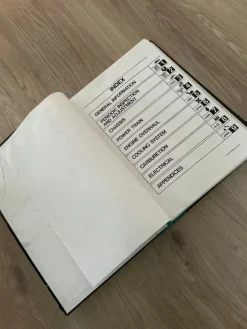 INDEX
GENERAL INFORMATION
PERIODIC INSPECTION
AND ADJUSTMENT
CHASSIS
POWER TRAIN
ENGINE OVERHAUL
COOLING SYSTEM
CARBURETION
ELECTRICAL
APPENDICES